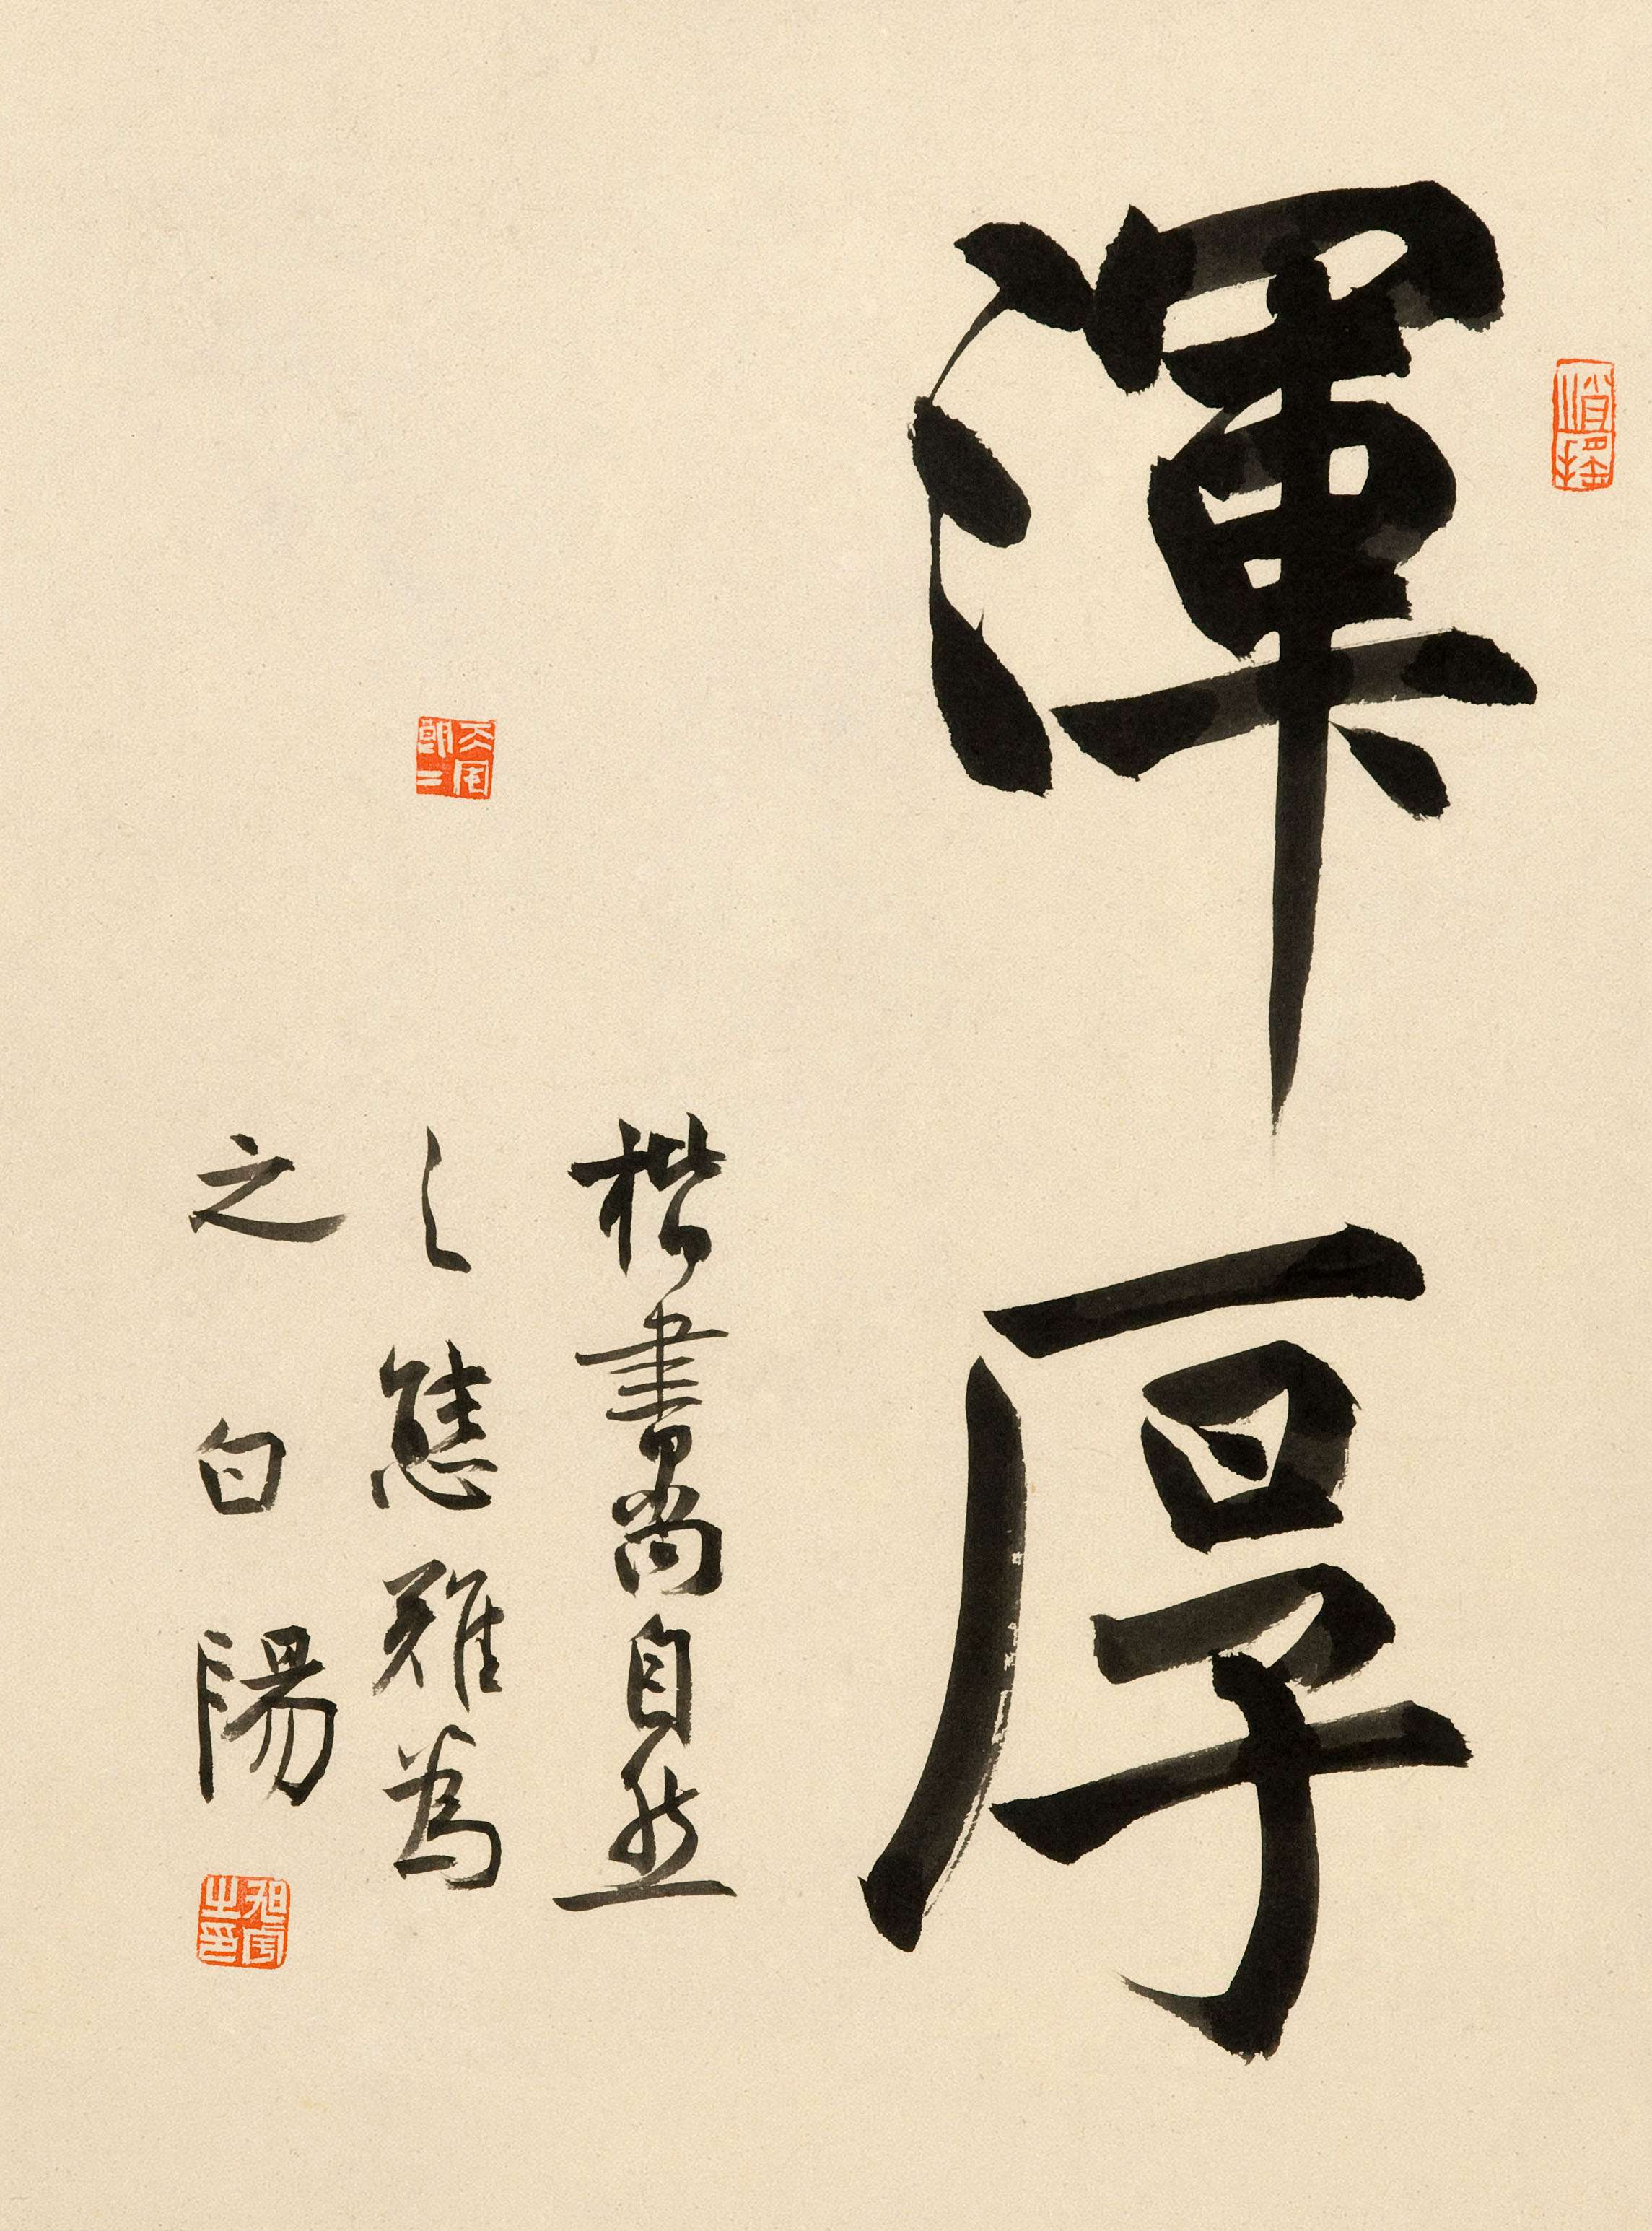 渾厚
楷書尚自然
之態難為
之 白陽